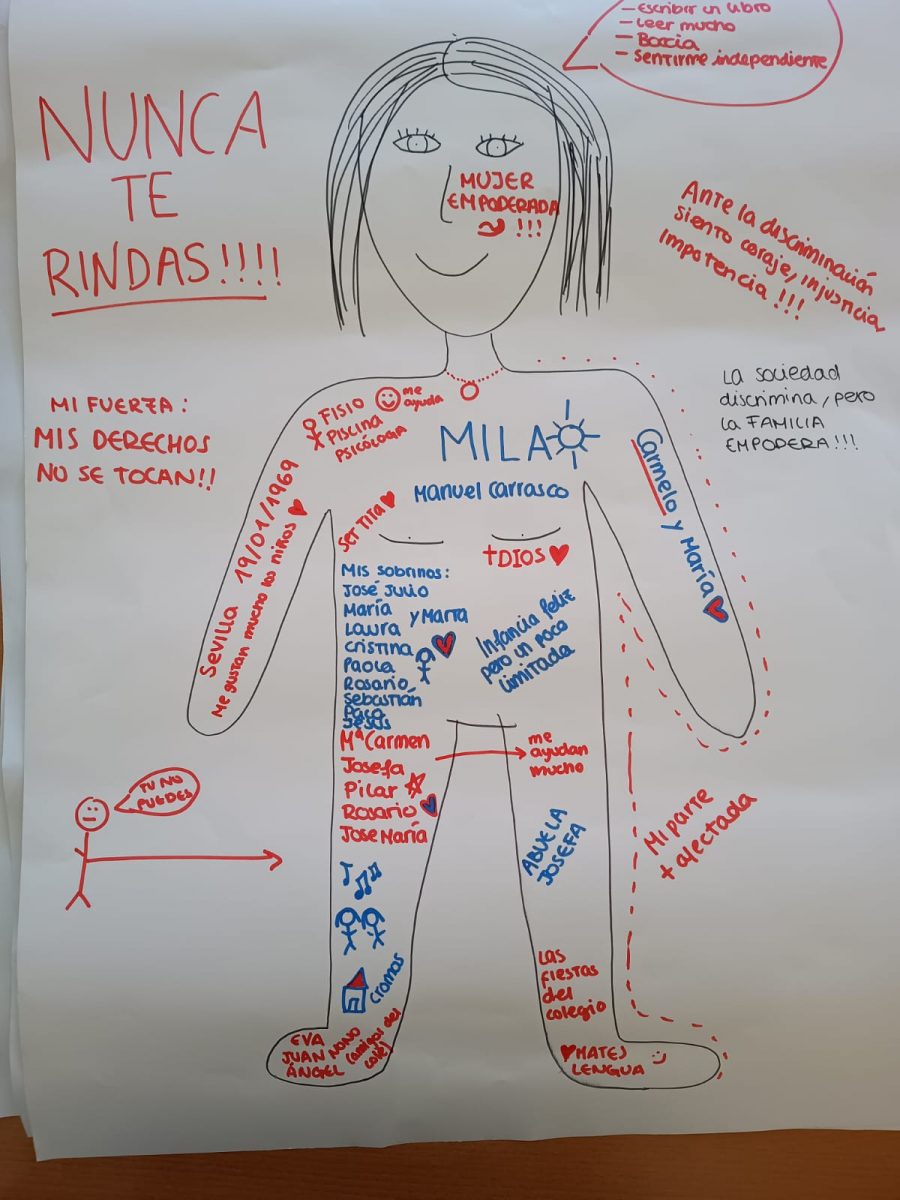 - Escribir un libro
- Leer mucho
- Boccia
- Sentirme independiente
NUNCA
TE
RINDAS!!!!
MUJER
EMPODERADA
!!!
Ante la discriminación
siento coraje, injusticia,
impotencia!!!
La sociedad
discrimina, pero
la FAMILIA
EMPODERA!!!
MI FUERZA:
MIS DERECHOS
NO SE TOCAN!!
FISIO
PISCINA
PSICÓLOGA
me
ayuda
MILA
Manuel Carrasco
Carmelo y María
Sevilla 19/01/1969
Me gustan mucho los niños
SER TITA
DIOS
Mis sobrinos:
José Julio
María
y Marta
Laura
Cristina
Paola
Rosario
Sebastián
Paco
Jesús
Infancia feliz
pero un poco
limitada
Mª Carmen
Josefa
Pilar
Rosario
Jose María
me
ayudan
mucho
TU NO
PUEDES
ABUELA
JOSEFA
Mi parte
+ afectada
cromos
Las
fiestas
del
colegio
EVA
JUAN NONO
ÁNGEL
(amigos del
cole)
MATES
LENGUA